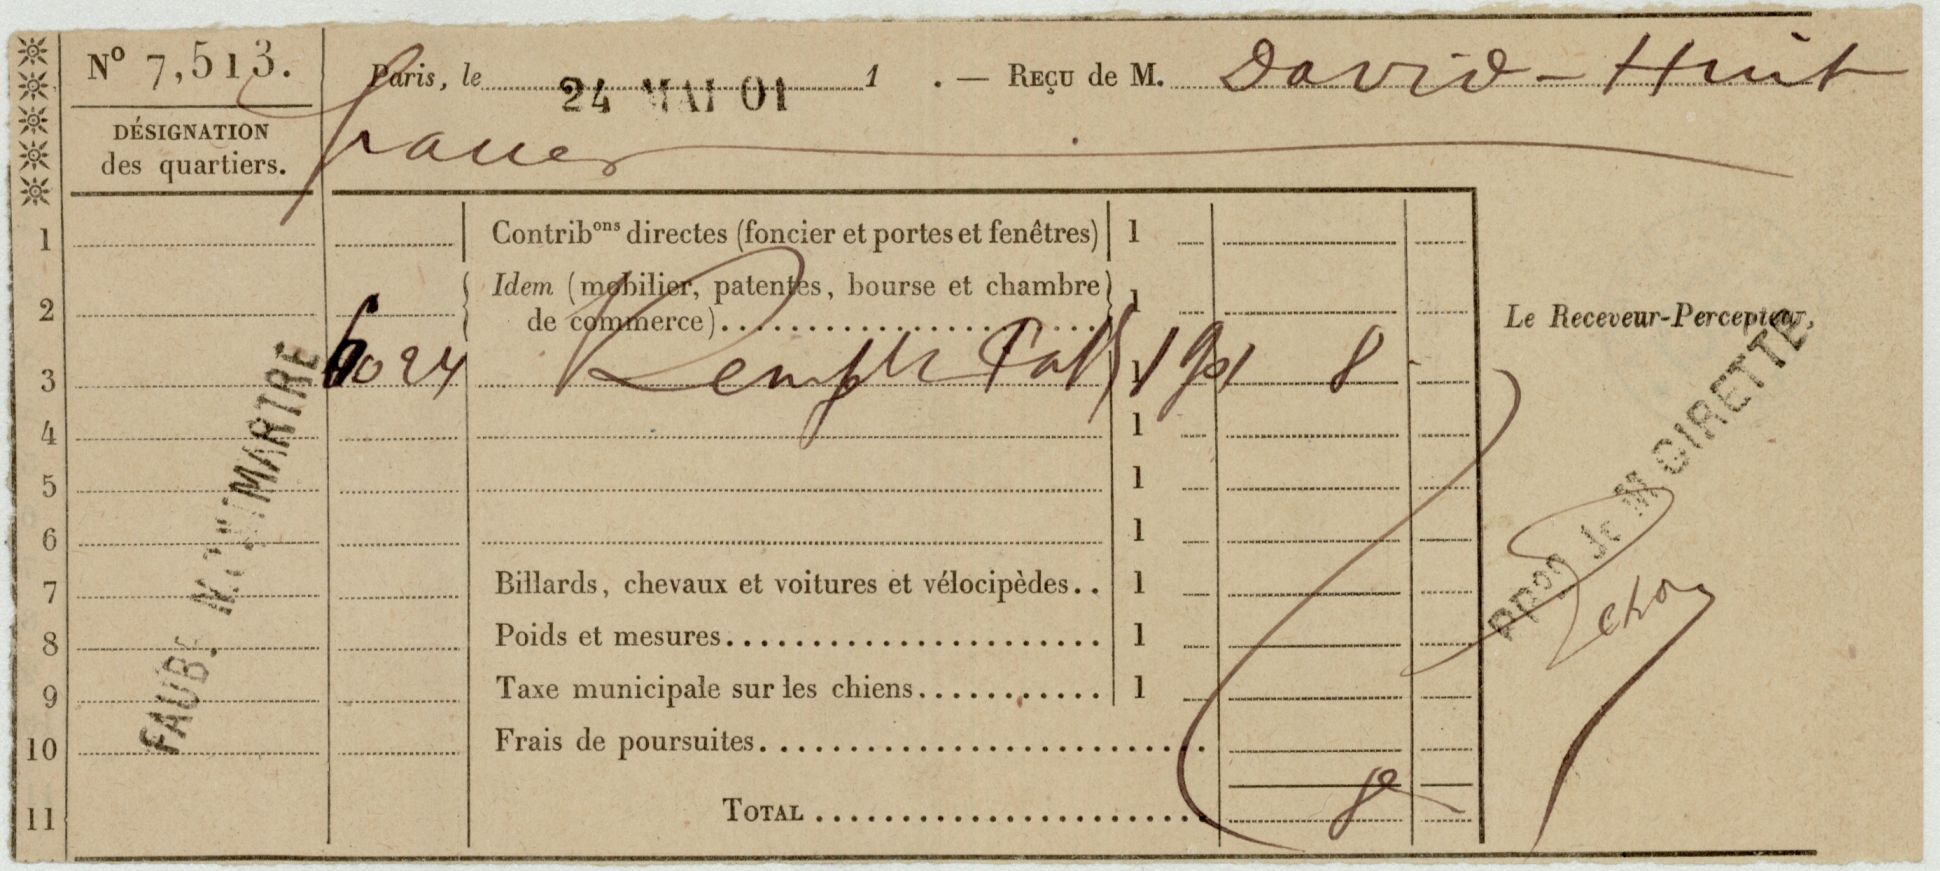 Nº 7,513.
Paris, le 24 MAI 01 1 . — REÇU de M. David - Huit
francs
DÉSIGNATION
des quartiers.
1 Contribons directes (foncier et portes et fenêtres) 1
2 Idem (mobilier, patentes, bourse et chambre
de commerce) 1
Le Receveur-Percepteur,
3 6024 1 1901 8
4 1
5 1
6 1
7 Billards, chevaux et voitures et vélocipèdes.. 1
8 Poids et mesures 1
9 Taxe municipale sur les chiens 1
10 Frais de poursuites
11 TOTAL 8
FAUBG. MONTMARTRE
Ppon de M GIRETTE